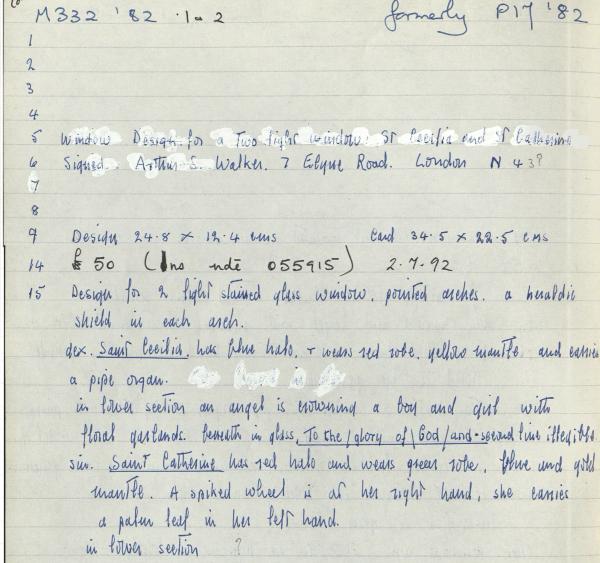 M332 '82 .1-2 formerly P17 '82
1
2
3
4
5 Window Design for a Two light window St Cecilia and St Catherine
6 Signed. Arthur S. Walker. 7 Elyne Road. London N 4 3?
7
8
9 Design 24.8 x 12.4 cms Card 34.5 x 22.5 cms
14 £50 (Ins note 055915) 2.7.92
15 Design for 2 light stained glass window. pointed arches. a heraldic
shield in each arch.
dex. Saint Cecilia has blue halo, + wears red robe, yellow mantle and carries
a pipe organ.
in lower section an angel is crowning a boy and girl with
floral garlands. beneath in glass, To the/glory of/God/and-second line illegible.
sin. Saint Catherine has red halo and wears green robe, blue and gold
mantle. A spiked wheel is at her right hand, she carries
a palm leaf in her left hand.
in lower section ?